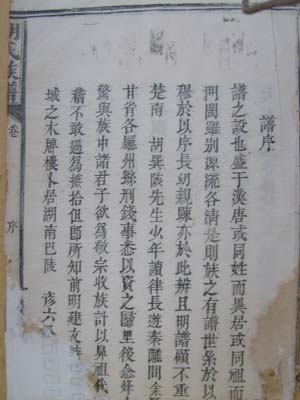 譜序
譜之設也盛于漢唐或同姓而異居或同祖而
門閥雖別源流各清是則族之有譜世系於以
穆於以序長幼親疎亦於此辨且明譜顧不重
楚南 胡 先生少年讀律長遊秦隴間
甘省各屬州縣刑錢事悉以資之歸里後念
驚與族中諸君子欲為敬宗收族計以鼻祖代
稽不敢過為摭拾但即所知前明建文
城之木 樓卜居湖南巴陵 彦六
族譜
卷
序